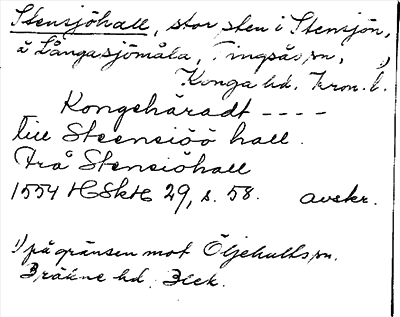 Stensjöhall, stor sten i Stensjön,
å Långasjömåla, Tingsås sn, 1)
Konga hd, Kron. l.
Kongehäradt ----
till Steensiöö hall.
Frå Stensiöhall
1554 HSkH 29, s. 58. avskr.
1) på gränsen mot Öljehults sn.
Bräkne hd. Blek.